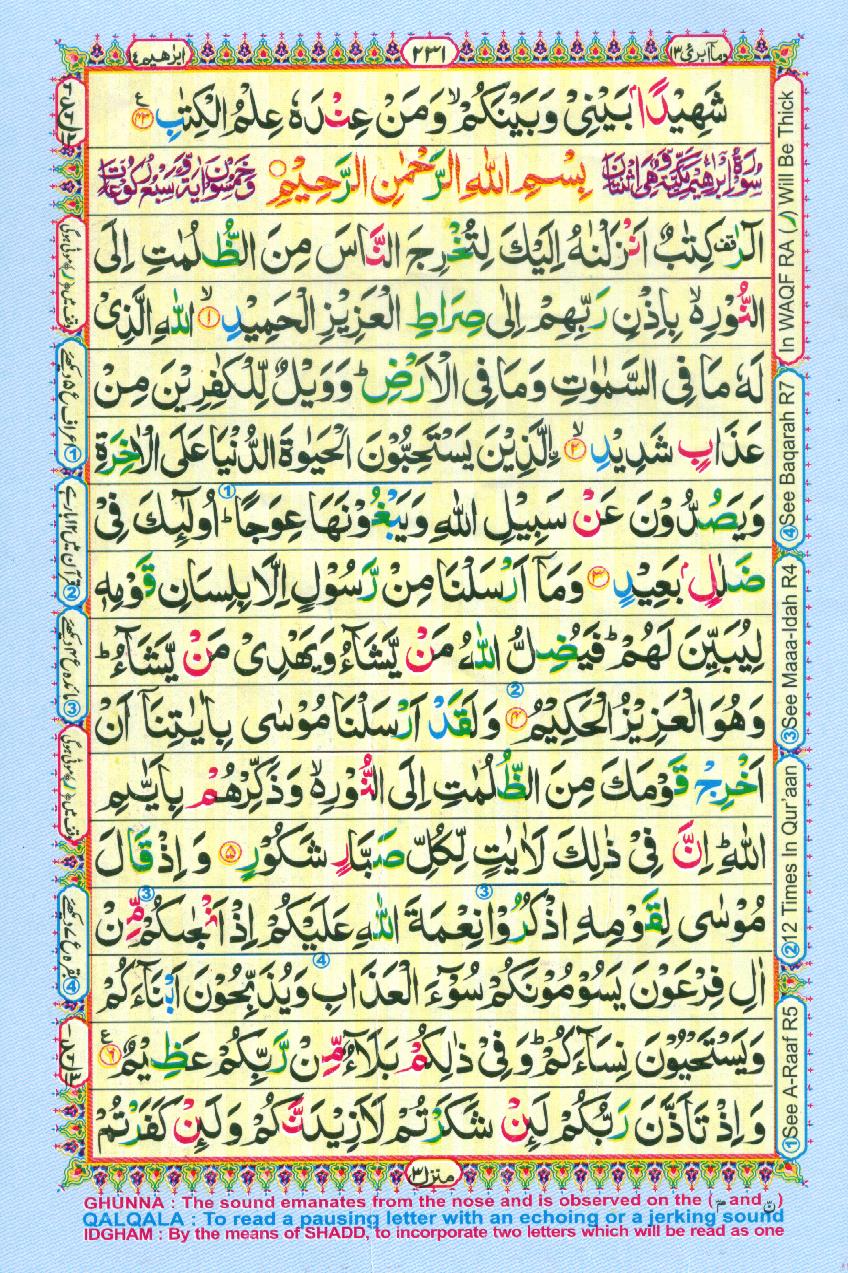 ابرٰهيم ١٤
٢٣١
وما ابرئ ١٣
شَهِيْدًۢا بَيْنِيْ وَبَيْنَكُمْ ۙ وَمَنْ عِنْدَهٗ عِلْمُ الْكِتٰبِ ﴿٤٣﴾ ع
سُوْرَةُ اِبْرٰهِيْمَ مَكِّيَّةٌ وَّهِيَ اثْنَتَانِ بِسْمِ اللّٰهِ الرَّحْمٰنِ الرَّحِيْمِ وَخَمْسُوْنَ اٰيَةً وَّسَبْعُ رُكُوْعَاتٍ
الٓرٰ قف كِتٰبٌ اَنْزَلْنٰهُ اِلَيْكَ لِتُخْرِجَ النَّاسَ مِنَ الظُّلُمٰتِ اِلَى
النُّوْرِ ۙ بِاِذْنِ رَبِّهِمْ اِلٰى صِرَاطِ الْعَزِيْزِ الْحَمِيْدِ ۙ﴿١﴾ اللّٰهِ الَّذِيْ
لَهٗ مَا فِي السَّمٰوٰتِ وَمَا فِي الْاَرْضِ ؕ وَوَيْلٌ لِّلْكٰفِرِيْنَ مِنْ
عَذَابٍ شَدِيْدِ ۙ﴿٢﴾ اِلَّذِيْنَ يَسْتَحِبُّوْنَ الْحَيٰوةَ الدُّنْيَا عَلَى الْاٰخِرَةِ
وَيَصُدُّوْنَ عَنْ سَبِيْلِ اللّٰهِ وَيَبْغُوْنَهَا عِوَجًا ؕ اُولٰٓئِكَ فِيْ ①
ضَلٰلٍۢ بَعِيْدٍ ﴿٣﴾ وَمَآ اَرْسَلْنَا مِنْ رَّسُوْلٍ اِلَّا بِلِسَانِ قَوْمِهٖ
لِيُبَيِّنَ لَهُمْ ؕ فَيُضِلُّ اللّٰهُ مَنْ يَّشَآءُ وَيَهْدِيْ مَنْ يَّشَآءُ ؕ
وَهُوَ الْعَزِيْزُ الْحَكِيْمُ ﴿٤﴾ ② وَلَقَدْ اَرْسَلْنَا مُوْسٰى بِاٰيٰتِنَآ اَنْ
اَخْرِجْ قَوْمَكَ مِنَ الظُّلُمٰتِ اِلَى النُّوْرِ ۙ وَذَكِّرْهُمْ بِاَيّٰىمِ
اللّٰهِ ؕ اِنَّ فِيْ ذٰلِكَ لَاٰيٰتٍ لِّكُلِّ صَبَّارٍ شَكُوْرٍ ﴿٥﴾ وَاِذْ قَالَ
مُوْسٰى لِقَوْمِهِ اذْكُرُوْا نِعْمَةَ اللّٰهِ عَلَيْكُمْ اِذْ اَنْجٰىكُمْ مِّنْ ③ ③
اٰلِ فِرْعَوْنَ يَسُوْمُوْنَكُمْ سُوْٓءَ الْعَذَابِ وَيُذَبِّحُوْنَ اَبْنَآءَكُمْ ④
وَيَسْتَحْيُوْنَ نِسَآءَكُمْ ؕ وَفِيْ ذٰلِكُمْ بَلَآءٌ مِّنْ رَّبِّكُمْ عَظِيْمٌ ﴿٦﴾ ع
وَاِذْ تَاَذَّنَ رَبُّكُمْ لَئِنْ شَكَرْتُمْ لَاَزِيْدَنَّكُمْ وَلَئِنْ كَفَرْتُمْ
منزل ٣
In WAQF RA (ر) Will Be Thick
④See Baqarah R7
③See Maaa-Idah R4
②12 Times In Qur'aan
①See A-Raaf R5
GHUNNA : The sound emanates from the nose and is observed on the (مّ and نّ)
QALQALA : To read a pausing letter with an echoing or a jerking sound
IDGHAM : By the means of SHADD, to incorporate two letters which will be read as one